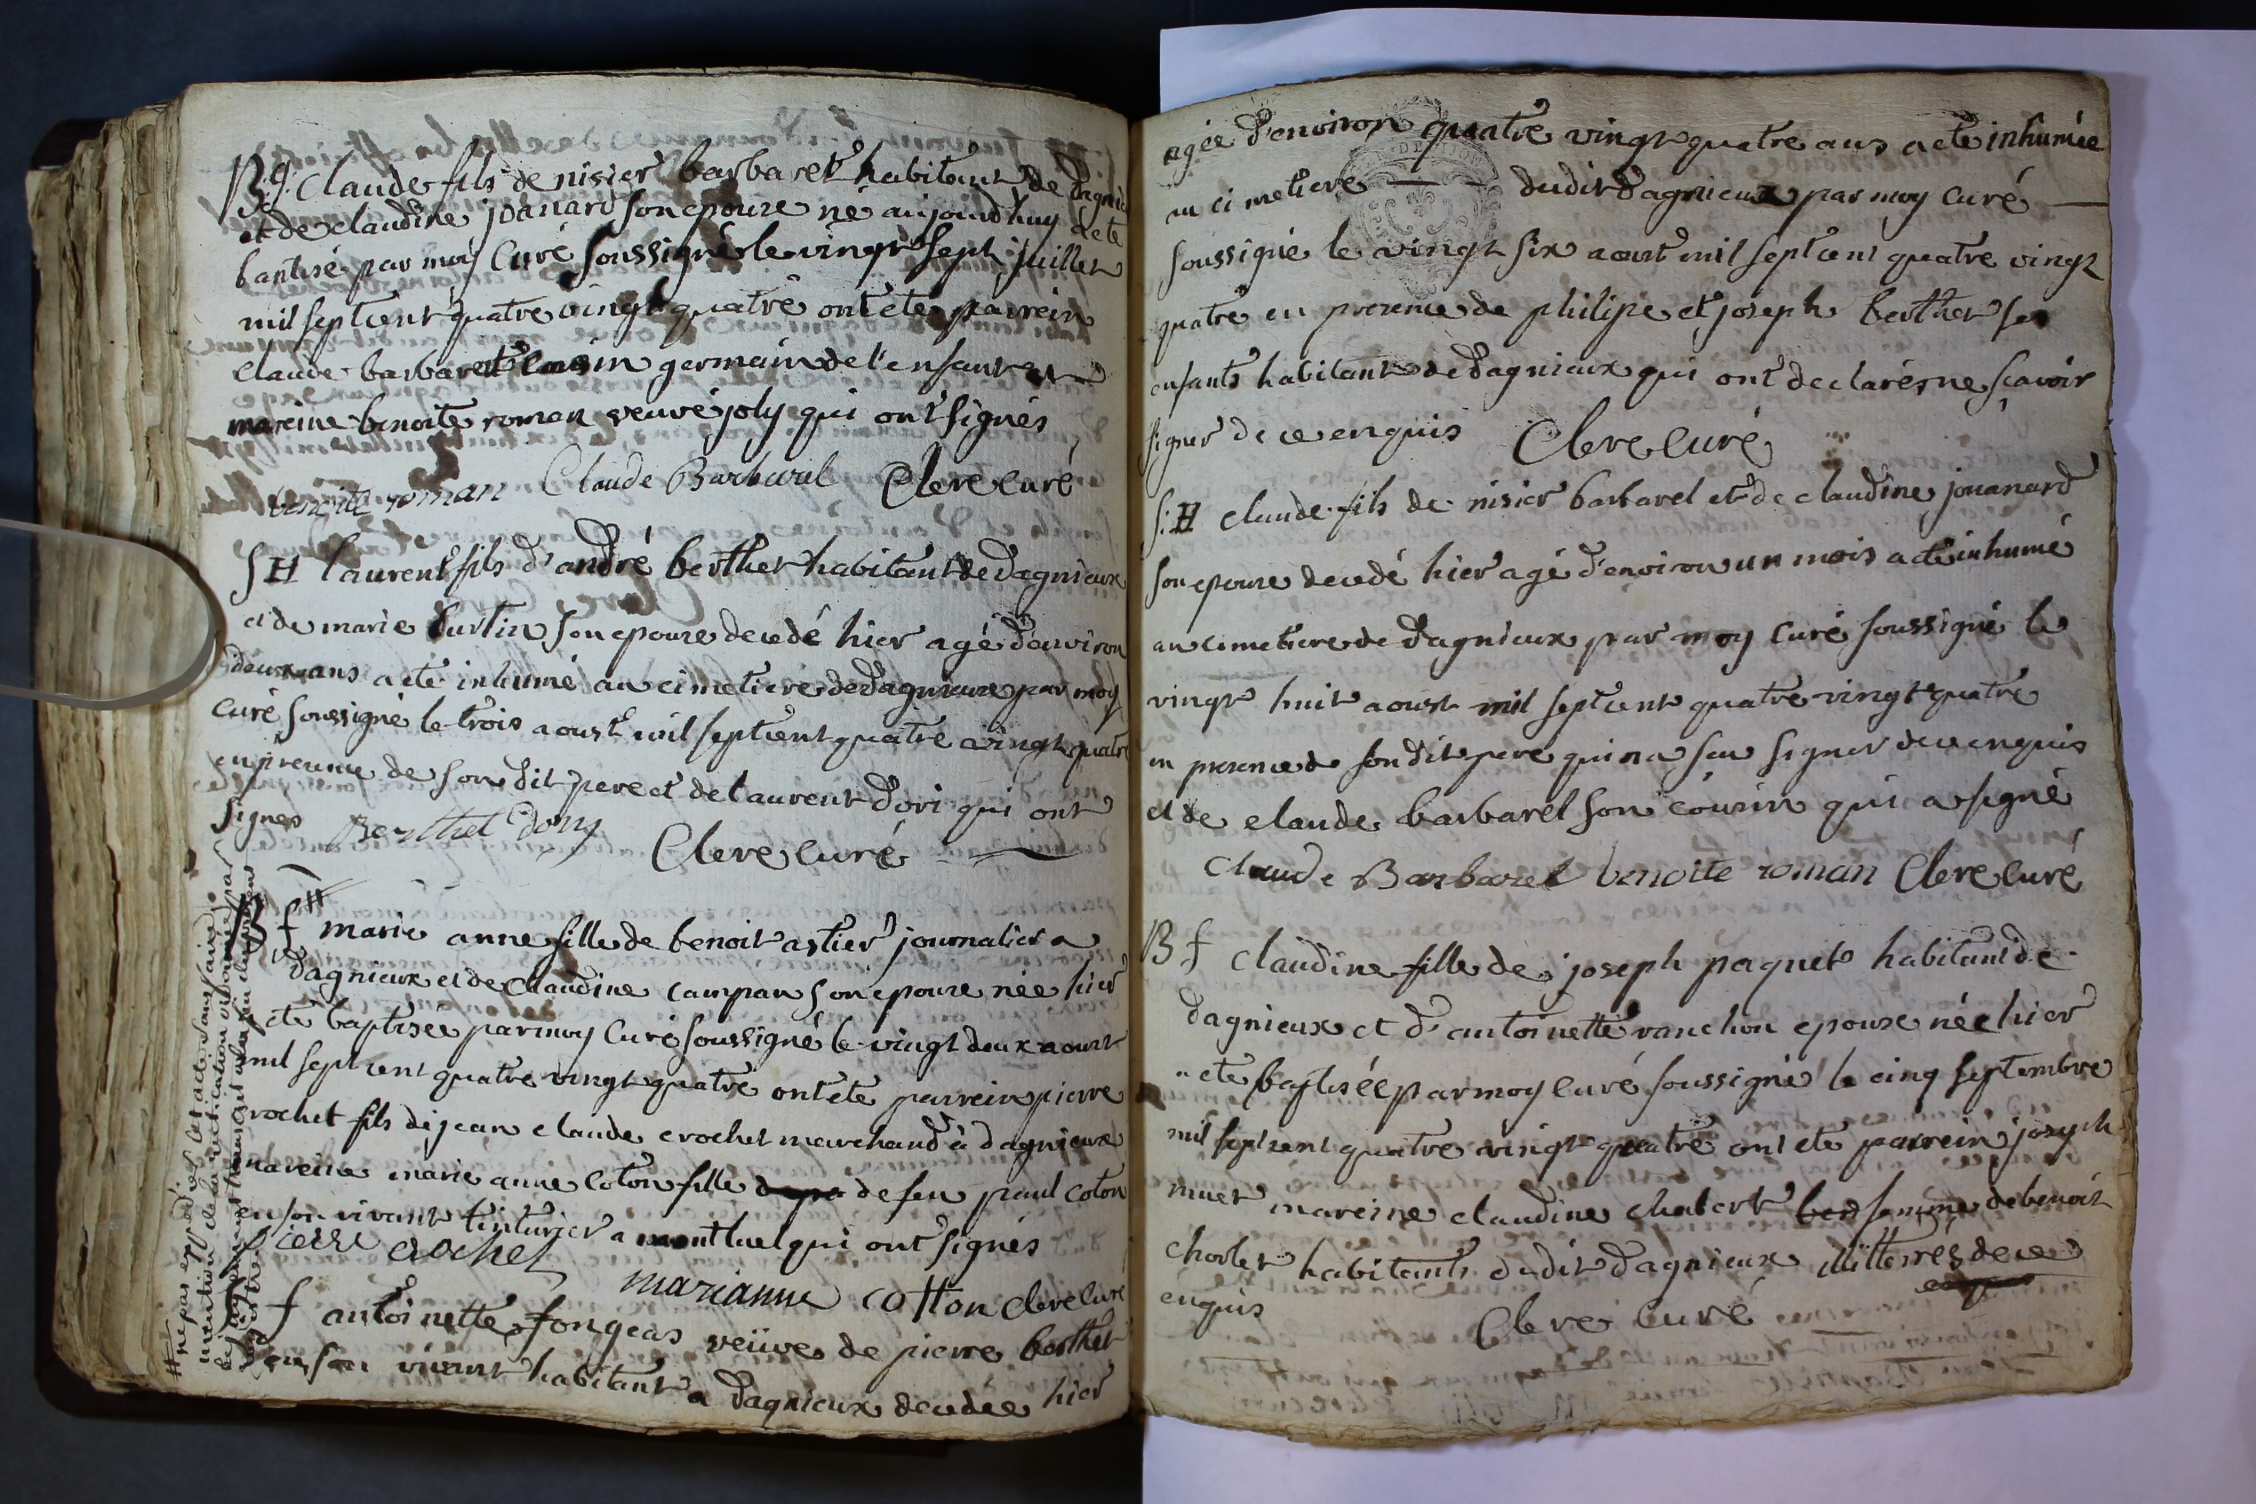 B: g: Claude fils de nisier barbaret habitant de Dagnieux
et de claudine joanard son epouse né aujourdhuy a eté
baptisé par moy Curé soussigné le vingt sept juillet
mil septcent quatre vingt quatre ont ete parrein
Claude barbaret cousin germain de l'enfant et
mareine benoite roman veuve joly qui ont signés
benoite roman Claude Barbarel Clere curé
S H laurent fils d'andré berthet habitant de Dagnieux
et de marie burtin son epouse decedé hier agé d'environ
deux ans a eté inhumé au cimetiere de Dagnieux par moy
Curé soussigné le trois aoust mil septcent quatre vingt quatre
en presence de son dit pere et de laurent Dori qui ont
signes Berthet Dory
Clere curé
B f # marie anne fille de benoit astier journalier a
Dagnieux et de Claudine campan son epouse née hier
eté baptisée par moy Curé soussigné le vingt deux aoust
mil sept cent quatre vingt quatre ont ete parrein pierre
crochet fils de jean claude crochet marchand à dagnieux
mareine marie anne Coton fille de feu paul coton
en son vivant teinturier a montluel qui ont signés
Pierre crochet
marianne cotton Clere curé
f antoinette fongeas veüve de pierre berthet
en son vivant habitant a Dagnieux decedee hier
# ne pas expedier cet acte sans faire
mention de la
agée d'environ quatre vingt quatre ans a eté inhumée
au cimetiere dudit Dagnieux par moy curé
soussigné le vingt six aoust mil septcent quatre vingt
quatre en presence de philipe et joseph berthet ses
enfants habitants de Dagnieux qui ont declarés ne sçavoir
signer de ce enquis Clere Curé
S: H claude fils de nisier barbarel et de claudine jouanard
son epouse decedé hier agé d'environ un mois a eté inhumé
au cimetiere de Dagnieux par moy Curé soussigné le
vingt huit aoust mil septcent quatre vingt quatre
en presence de son dit pere qui n'a sçu signer de ce enquis
et de claude barbarel son cousin qui a signé
Claude Barbarel benoite roman Clere curé
B f Claudine fille de joseph paquet habitant de
Dagnieux et d'antoinette vanchon epouse née hier
a eté baptisée par moy curé soussigné le cinq septembre
mil septcent quatre vingt quatre ont eté parrein joseph
muet mareine claudine chabert femme de benoit
chorlet habitants dudit Dagnieux illitterrés de ce
enquis Clere curé